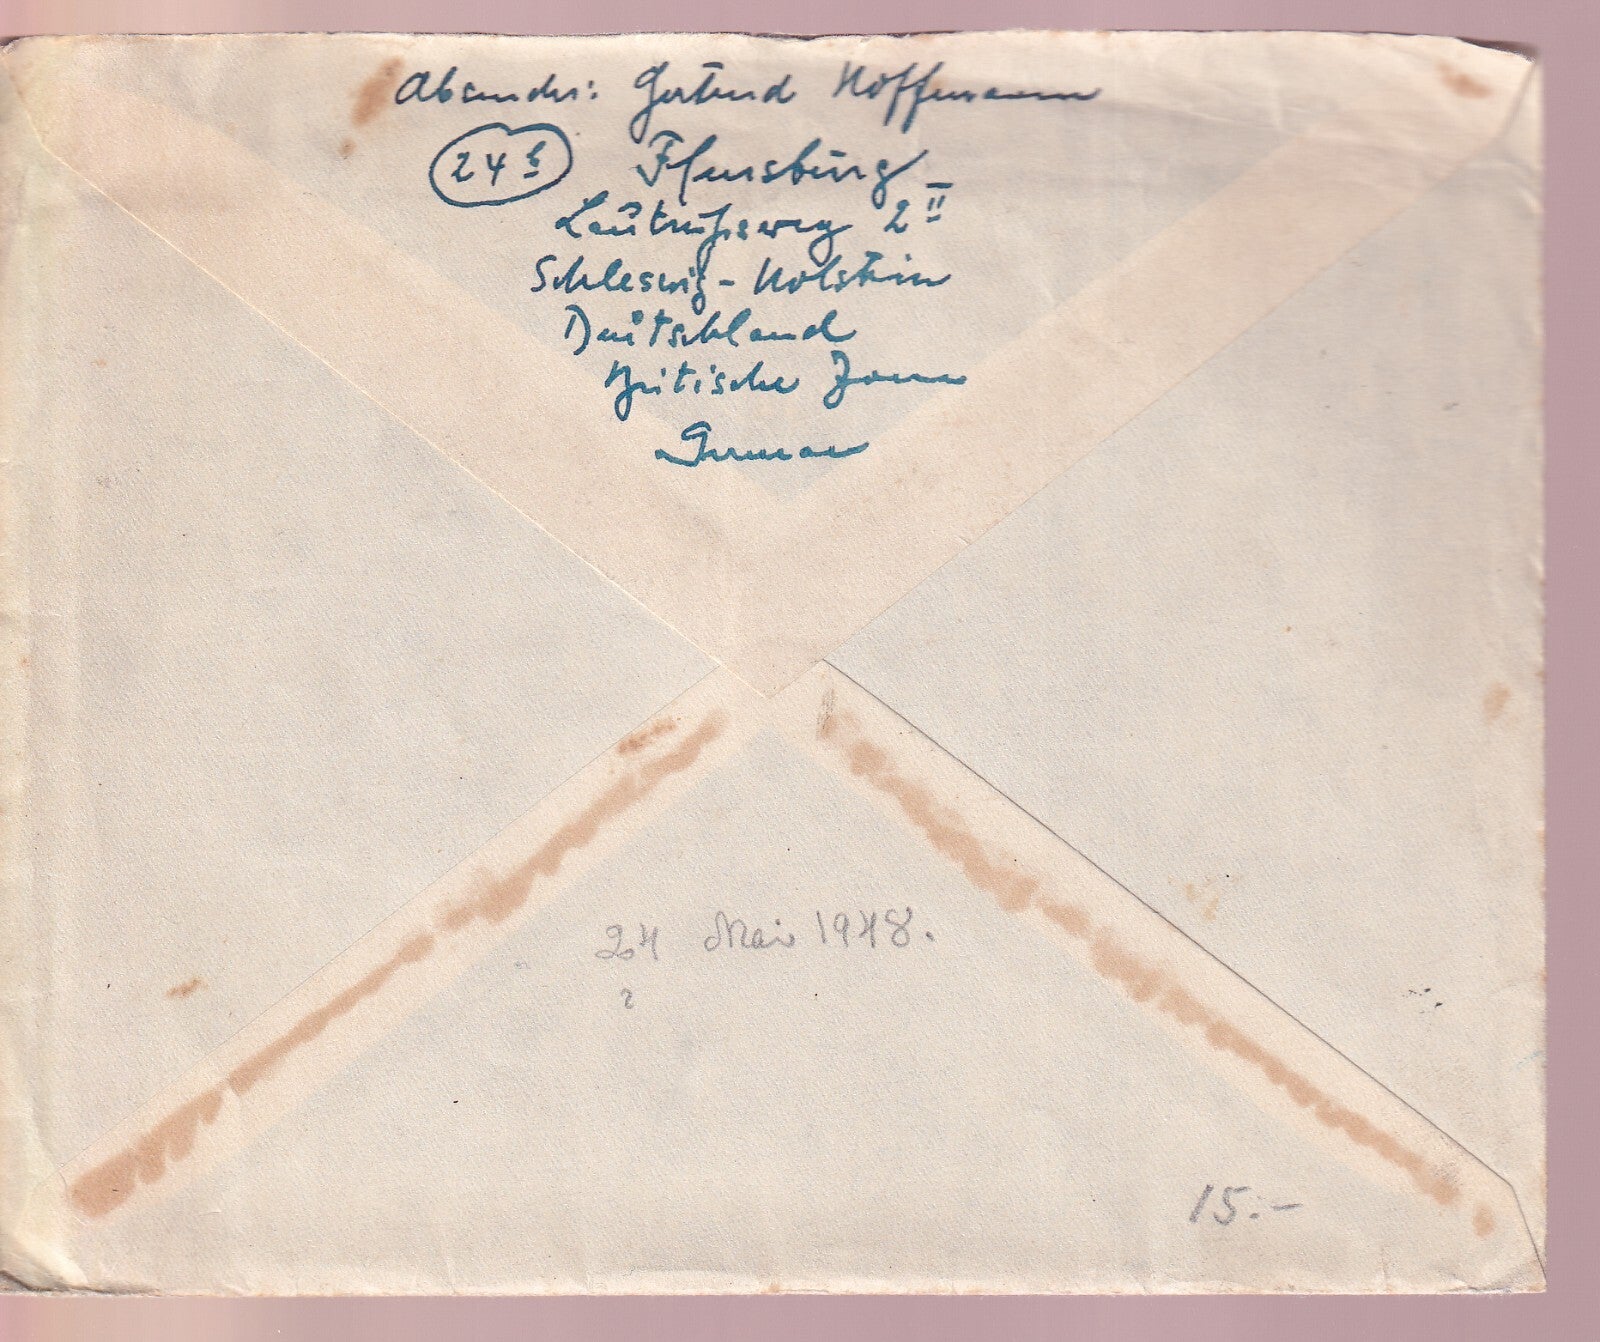 Absender: Gertrud Hoffmann
24b Flensburg
Lautrupsweg 2 II
Schleswig-Holstein
Deutschland
Britische Zone
German
24 Mai 1948.
2
15.-